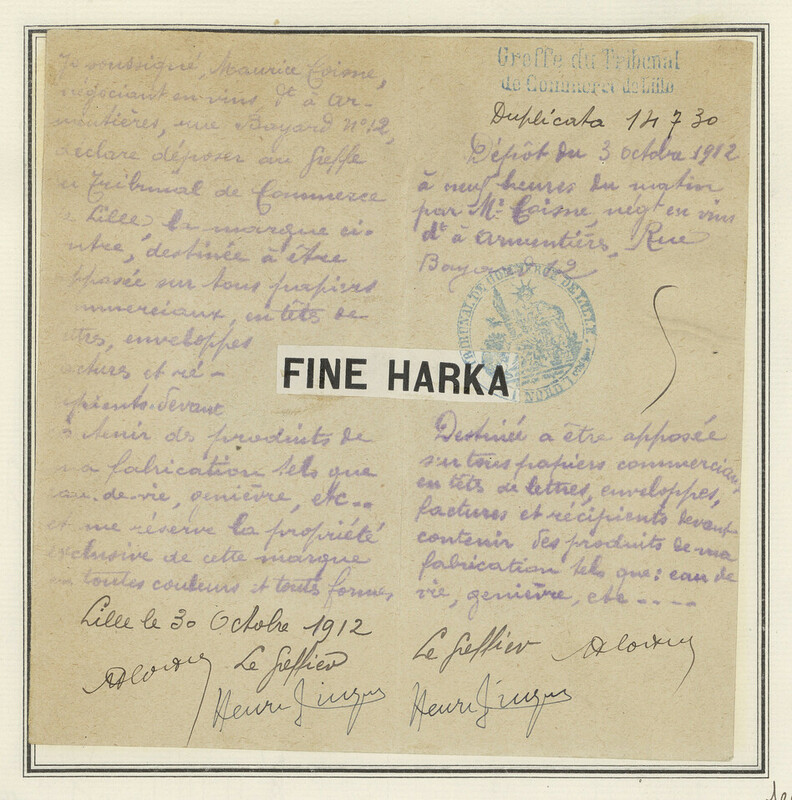 Je soussigné, Maurice Coisne,
négociant en vins, dt à Ar-
mentières, rue Bayard N° 12,
déclare déposer au Greffe
du Tribunal de Commerce
de Lille, la marque ci-
ntre, destinée à être
pposée sur tous papiers
mmerciaux, en têts de
ttres, enveloppes
ctures et ré-
pients devant
tenir des produits de
ma fabrication tels que
eau-de-vie, genièvre, etc...
et me réserve la propriété
exclusive de cette marque
en toutes couleurs et touts formes
Lille le 30 Octobre 1912
Le Greffier
Henri
Greffe du Tribunal
de Commerce de Lille
Duplicata 14730
Dépôt du 3 octobre 1912
à neuf heures du matin
par Mr Coisne, négt en vins
dt à Armentières, Rue
Bayard 12
TRIBUNAL DE COMMERCE DE LILLE
NORD
FINE HARKA
Destinée a être apposée
sur tous papiers commerciaux
en têts de lettres, enveloppes,
factures et récipients devant
contenir des produits de ma
fabrication tels que: eau de
vie, genièvre, etc.....
Le Greffier
Henri